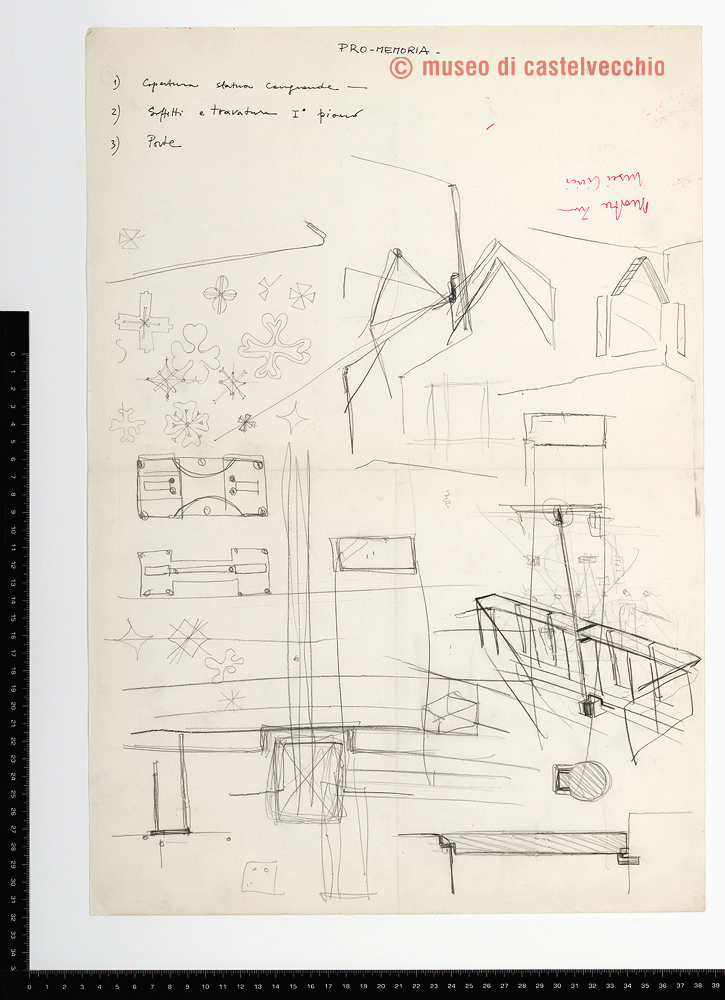 PRO-MEMORIA -
© museo di castelvecchio
1) Copertura statua Cangrande —
2) Soffitti e travature I° piano
3) Porte
Musei Civici
Mostra
0 1 2 3 4 5 6 7 8 9 10 11 12 13 14 15 16 17 18 19 20 21 22 23 24 25 26 27 28 29 30 31 32 33 34
0 1 2 3 4 5 6 7 8 9 10 11 12 13 14 15 16 17 18 19 20 21 22 23 24 25 26 27 28 29 30 31 32 33 34 35 36 37 38 39